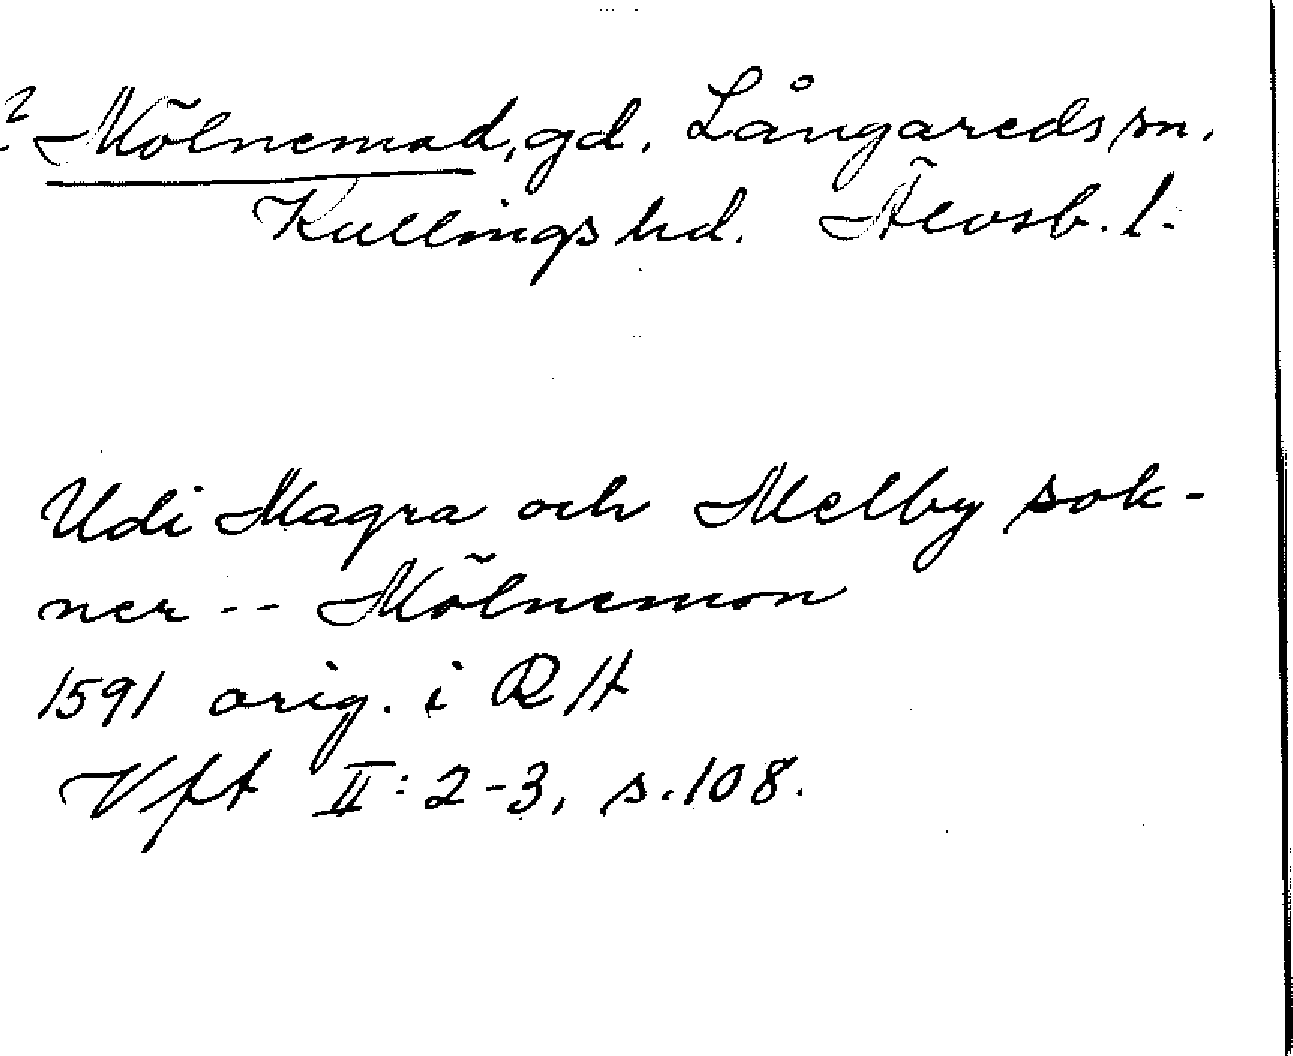 ? Mölnemad, gd. Långareds sn.
Kullings hd. Älvsb. l.
Udi Magra och Melby sok-
ner -- Mölnemon
1591 orig. i RA
Vft II: 2-3, s. 108.